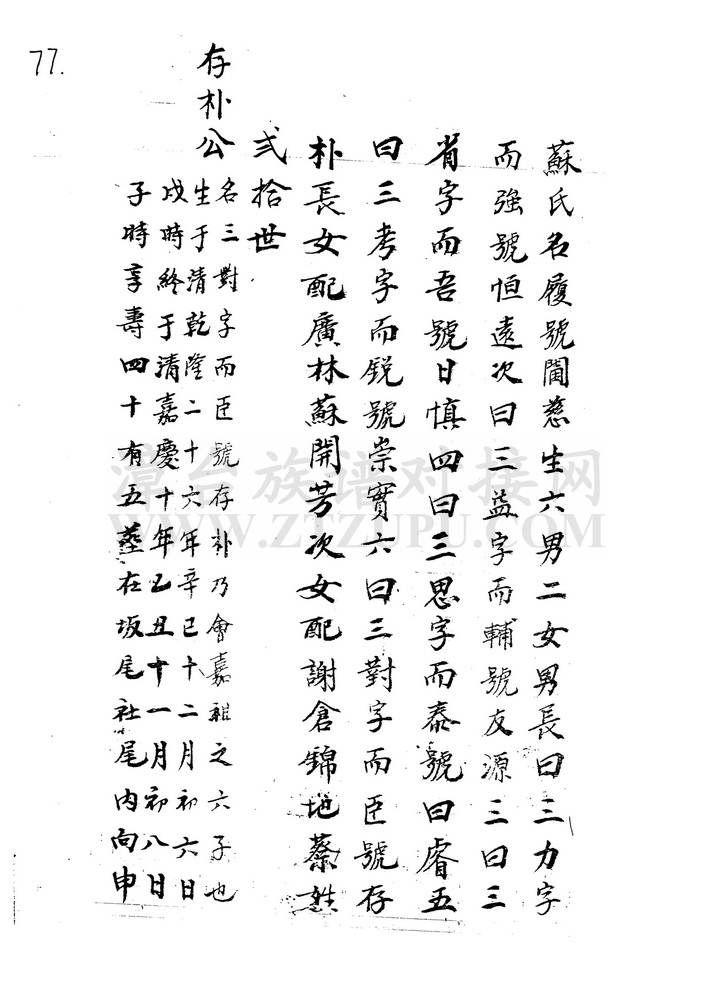 77.
蘇氏名履號閫慈生六男二女男長曰三力字
而強號恒遠次曰三益字而輔號友源三曰三
省字而吾號日慎四曰三思字而泰號曰睿五
曰三考字而銳號崇實六曰三對字而臣號存
朴長女配廣林蘇開芳次女配謝倉錦地蔡姓
弍拾世
存朴公
名三對字而臣號存朴乃會嘉祖之六子也
生于清乾隆二十六年辛巳十二月初六日
戌時終于清嘉慶十年乙丑十一月初八日
子時享壽四十有五葬在坂尾社尾內向申
漳台族谱对接网
WWW.ZTZUPU.COM